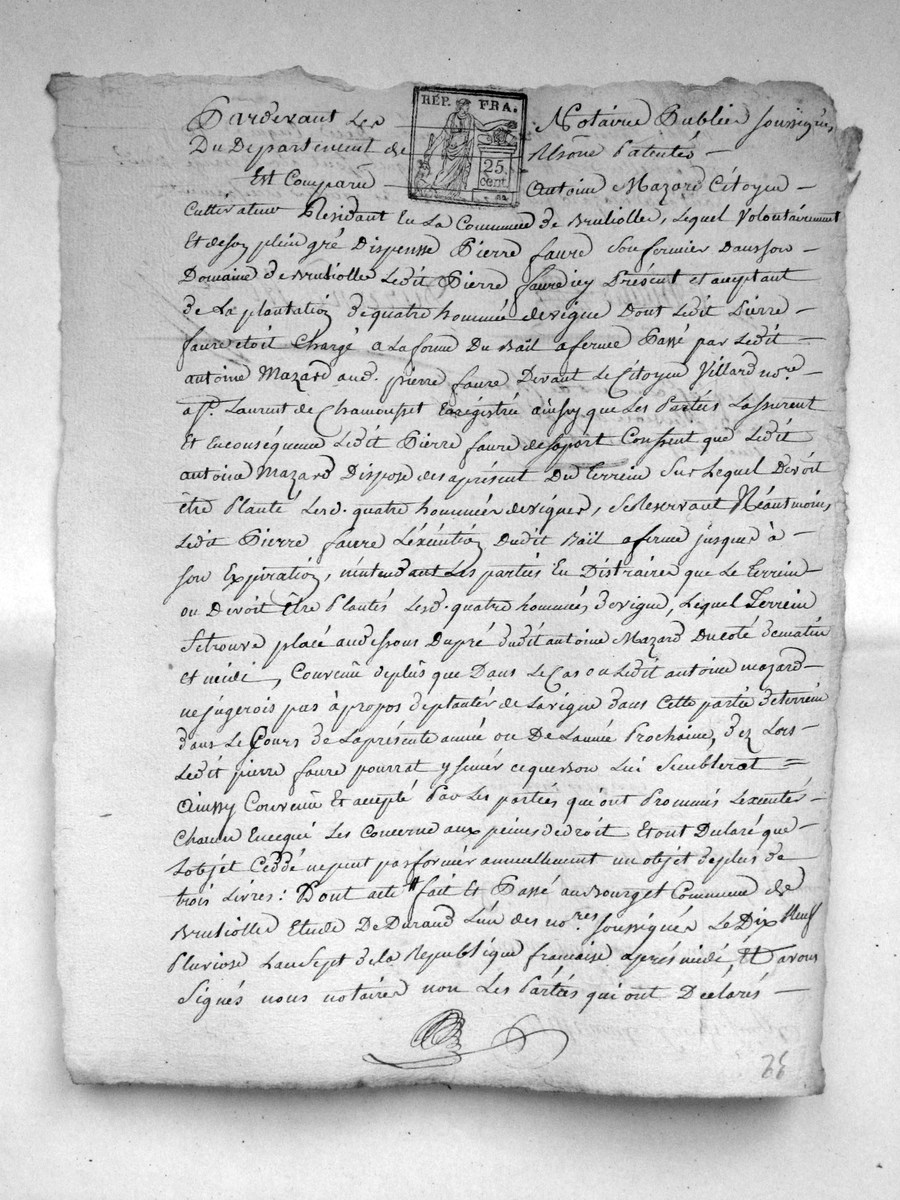 Pardevant Les Notaires Publics soussignés
RÉP. FRA.
25.
cent.
Du Departement du Rhône Patentés —
Est Comparu — antoine Mazard Citoyen —
Cultivateur Residant En La Commune de Brulliolle, Lequel Volontairement
Et de son plein gré Dispensse Pierre faure son fermier dans son —
Domaine de Brulliolle Ledit Pierre faure icy Présent et aceptant
de La plantation de quatre hommée de vigne Dont Ledit Pierre
faure étoit Chargé a La forme Du Bail a ferme Passé par Ledit —
antoine Mazard aud. pierre faure Devant Le Citoyen Villard nore.
a St. Laurent de Chamousset Enregistrée ainsy que Les Parties Lassurent
Et En conséquence Ledit Pierre faure de sa part Conssent que Ledit
antoine Mazard Dispose des aprésent Du Terrein Sur Lequel Devoit
être Planté Lesd. quatre hommées de vignes, se Reservant Néantmoins
Ledit Pierre faure L'éxécution Dudit Bail a ferme jusques à —
son Expiration, n'entendant Les parties En Distraires que Le terrein
ou Devoit Être Plantés Lesd. quatre hommées de vigne, Lequel Terrein
se trouve placé au dessous du pré dudit antoine Mazard Du coté de matin
et midi, Convenu de plus que Dans Le Cas ou Ledit antoine mazard —
ne jugerois pas à propos de planter de La vigne dans Cette partie de terrein
dans Le Cours de La présente année ou De L'année Prochaine, dez Lors —
Ledit pierre faure pourrat y semer ce que bon Lui Semblerat =
Ainssy Convenu Et accepté Par Les parties qui ont Promis L'exécuter —
Chacun En ce qui Les Concerne aux peines de droit Et ont Declaré que —
L'objet Ceddé ne peut pas former annuellement un objet de plus de
trois Livres: Dont acte fait Et Passé au Bourget Commune de
Brulliolle Etude De Durand L'un des nores. soussignés Le Dix Neuf
Pluviose L'an Sept de la Republique francaise après midi, Et avons
Signés nous notaires non Les Parties qui ont Déclarés —